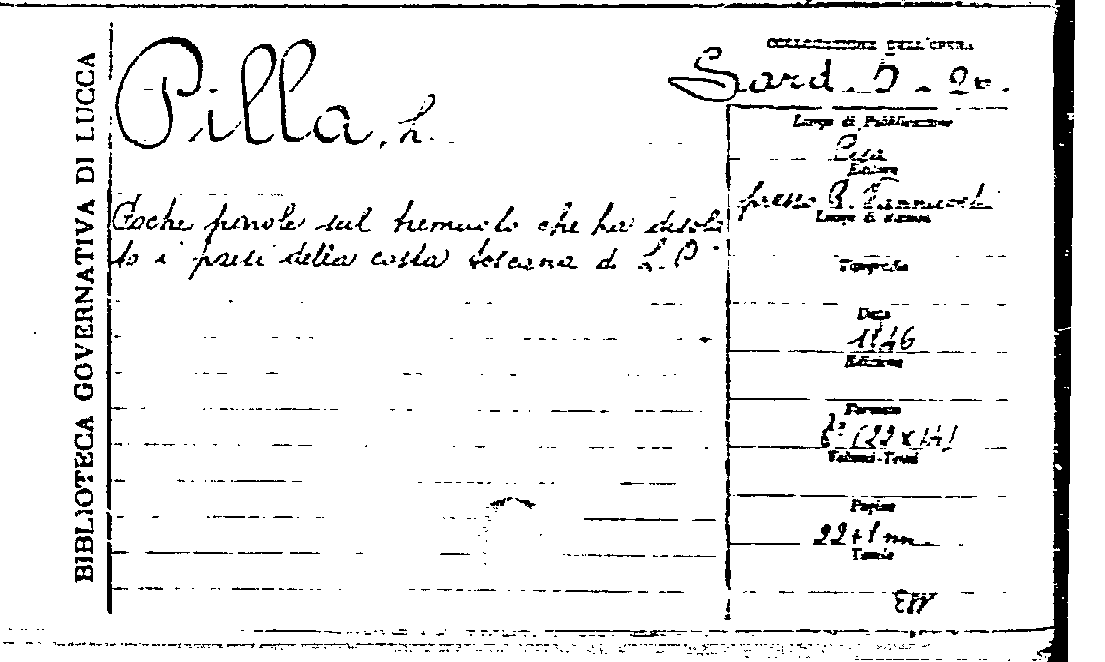 BIBLIOTECA GOVERNATIVA DI LUCCA
Pilla, L.
Poche parole sul tremuoto che ha desola
to i paesi della costa toscana di L. P.
COLLOCAZIONE DELL'OPERA
Sard. 5 - 20.
Luogo di Pubblicazione
Pisa
Editore
presso R. Vannucchi
Luogo di stampa
Tipografia
Data
1846
Edizione
Formato
8° (22 x 14)
Volumi-Tomi
Pagine
22+1 nn.
Tavole